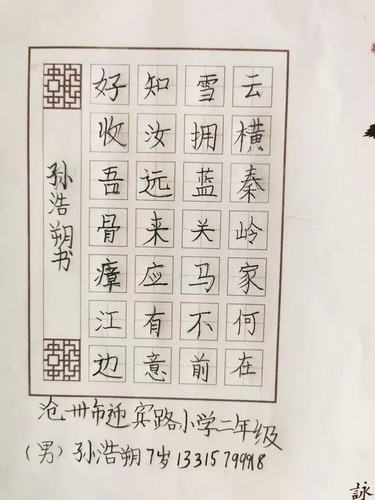 云横秦岭家何在
雪拥蓝关马不前
知汝远来应有意
好收吾骨瘴江边
孙浩朔书
沧州市迎宾路小学二年级
（男）孙浩朔7岁
詠